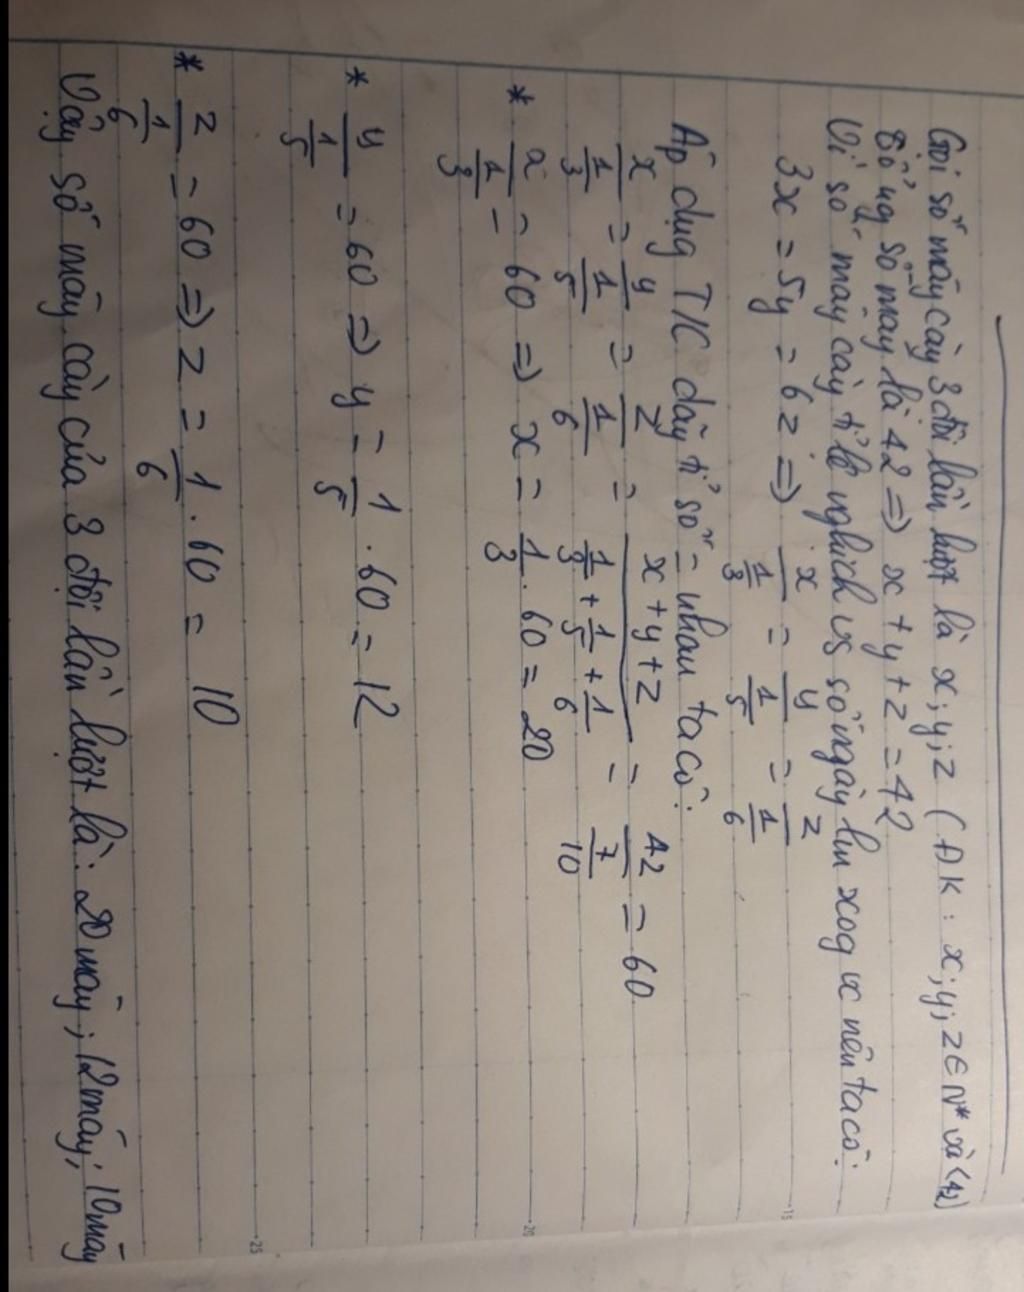 Gọi số máy cày 3 đội lần lượt là x; y; z (ĐK: x; y; z ∈ N* và <42)
Tổng số máy là 42 => x + y + z = 42
Vì số máy cày tỉ lệ nghịch vs số ngày lm xog vc nên ta có:
3x = 5y = 6z => x/(1/3) = y/(1/5) = z/(1/6)
Áp dụg T/C dãy tỉ số = nhau ta có:
x/(1/3) = y/(1/5) = z/(1/6) = (x+y+z)/(1/3 + 1/5 + 1/6) = 42/(7/10) = 60
* x/(1/3) = 60 => x = 1/3 . 60 = 20
* y/(1/5) = 60 => y = 1/5 . 60 = 12
* z/(1/6) = 60 => z = 1/6 . 60 = 10
Vậy số máy cày của 3 đội lần lượt là: 20 máy; 12 máy; 10 máy
15
20
25